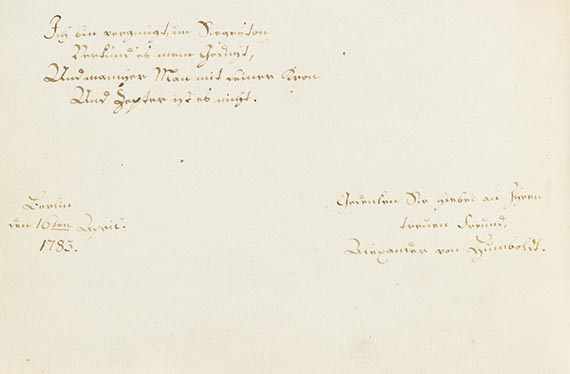 Ich bin vergnügt, im Siegeston
Verkünd es mein Gedicht,
Und mancher Man mit seiner Kron
Und Zepter ist es nicht.
Berlin.
den 16ten April.
1783.
Gedenken Sie hiebei an Ihren
treuen Freund,
Alexander von Humboldt.